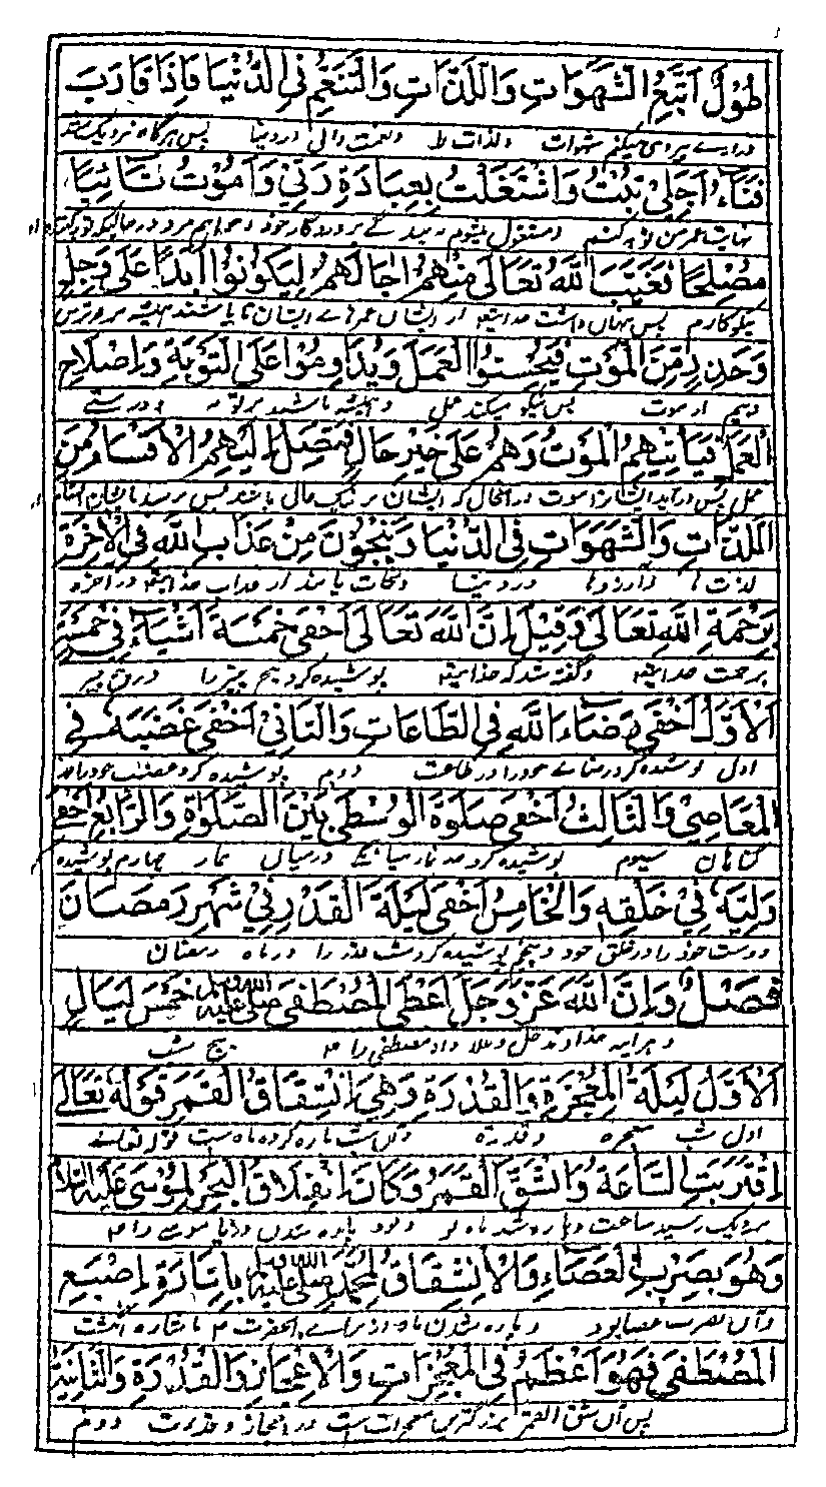 طُوْلُ اَتَّبِعُ الشَّهَوَاتِ وَاللَّذَّاتِ وَالتَّنَعُّمِ فِي الدُّنْيَا فَاِذَا قَارَبَ
پیروی میکنم شهوات ولذات را ونعمت والی در دنیا پس هرگاه نزدیک
فَنَاءُ اَجَلِىْ تُبْتُ وَاشْتَغَلْتُ بِعِبَادَةِ رَبِّىْ وَاَمُوْتُ تَائِبًا
نهایت عمر من توبه کنم ومشغول میشوم پروردگار خود
مُصْلِحًا فَغَيَّبَ اللّٰهُ تَعَالٰى مِنْهُمْ اٰجَالَهُمْ لِيَكُوْنُوْا اَبَدًا عَلٰى وَجَلٍ
نیکوکارم پس پنهان داشت خدایتعه از ایشان عمرهاے ایشان تا باشند همیشه بر ترس
وَحَذَرٍ مِّنَ الْمَوْتِ فَيُحْسِنُوا الْعَمَلَ وَيُدَاوِمُوْا عَلَى التَّوْبَةِ وَاِصْلَاحِ
وبیم از موت پس نیکو میکنند عمل وهمیشه باشند بر توبه ودرستے
الْعَمَلِ فَيَأْتِيْهِمُ الْمَوْتُ وَهُمْ عَلٰى خَيْرِ حَالٍ فَتَصِلُ اِلَيْهِمُ الْاَقْسَامُ مِنَ
عمل پس درآید ایشانرا موت در آنحال که ایشان بر نیک حال باشند پس برسد بایشان
اللَّذَّاتِ وَالشَّهَوَاتِ فِي الدُّنْيَا وَيَنْجُوْنَ مِنْ عَذَابِ اللّٰهِ فِي الْاٰخِرَةِ
لذت ها وآرزوها در دنیا ونجات یابند از عذاب خدایتعه در آخره
بِرَحْمَةِ اللّٰهِ تَعَالٰى وَقِيْلَ اِنَّ اللّٰهَ تَعَالٰى اَخْفٰى خَمْسَةَ اَشْيَاءَ فِيْ خَمْسَةٍ
برحمت خدایتعه وگفته شد که خدایتعه پوشیده کرد پنج چیز را در پنج چیز
اَلْاَوَّلُ اَخْفٰى رِضَاءَ اللّٰهِ فِي الطَّاعَاتِ وَالثَّانِيْ اَخْفٰى غَضَبَهٗ فِي
اول پوشیده کرد رضاے خود را در طاعت دوم پوشیده کرد غضب خود را در
الْمَعَاصِيْ وَالثَّالِثُ اَخْفٰى صَلٰوةَ الْوُسْطٰى بَيْنَ الصَّلٰوةِ وَالرَّابِعُ اَخْفٰى
گناهان سیوم پوشیده کرد نماز میانگی درمیان نماز چهارم پوشیده
وَلِيَّهٗ فِيْ خَلْقِهٖ وَالْخَامِسُ اَخْفٰى لَيْلَةَ الْقَدْرِ فِيْ شَهْرِ رَمَضَانَ
دوست خود را در خلق خود وپنجم پوشیده کرد شب قدر را در ماه رمضان
فَصْلٌ وَاِنَّ اللّٰهَ عَزَّ وَجَلَّ اَعْطَى الْمُصْطَفٰى صلى الله عليه وسلم خَمْسَ لَيَالٍ
وهرآینه خداوند جل وعلا داد مصطفی را پنج شب
اَلْاَوَّلُ لَيْلَةُ الْمُعْجِزَةِ وَالْقُدْرَةِ وَهِيَ اِنْشِقَاقُ الْقَمَرِ قَوْلُهٗ تَعَالٰى
اول شب معجزه وقدرة وآن شب پاره کرده ماه ست قول تعالے
اِقْتَرَبَتِ السَّاعَةُ وَانْشَقَّ الْقَمَرُ وَكَانَ انْفِلَاقُ الْبَحْرِ لِمُوْسٰى عَلَيْهِ السَّلَامُ
نزدیک رسید ساعت وپاره شد ماه وبود پاره شدن دریا موسے را
وَهُوَ بِضَرْبِ الْعَصَاءِ وَالْاِنْشِقَاقُ لِمُحَمَّدٍ صلى الله عليه وسلم بِاِشَارَةِ اِصْبَعِ
وآن بضرب عصا بود وپاره شدن ماه از براے آنحضرت م باشاره انگشت
الْمُصْطَفٰى فَهُوَ اَعْظَمُ فِي الْمُعْجِزَاتِ وَالْاِعْجَازِ وَالْقُدْرَةِ وَالثَّانِيَةُ
پس آن شق القمر بزرگترین معجزات است در اعجاز وقدرت دوم